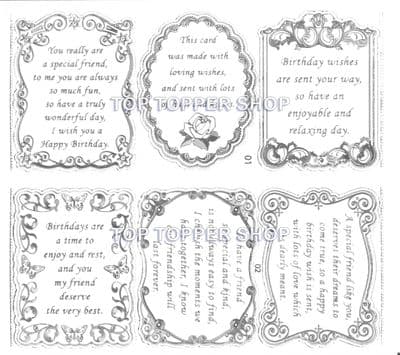 You really are
a special friend,
to me you are always
so much fun,
so have a truly
wonderful day,
I wish you a
Happy Birthday.
This card
was made with
loving wishes,
and sent with lots
Birthday wishes
are sent your way,
so have an
enjoyable and
relaxing day.
TOP TOPPER SHOP
01
Birthdays are
a time to
enjoy and rest,
and you
my friend
deserve
the very best.
have a friend
kind,
is always easy to find,
I cherish the moments we
have together, I know
friendship will
last forever.
02
A special friend like you,
deserves their dreams to
come true, so a happy
birthday wish is sent
with lots of love which
is dearly meant.
TOP TOPPER SHOP